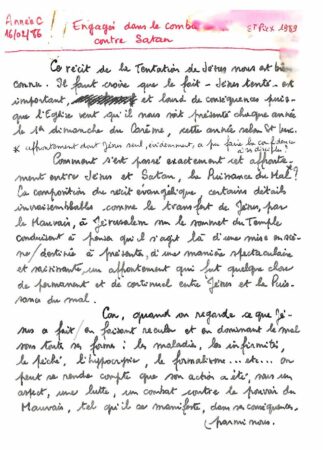 Année C
16/02/86
Engagés dans le combat
contre Satan
et Pix 1989
Ce récit de la Tentation de Jésus nous est bien
connu. Il faut croire que le fait - Jésus tenté - est
important, et lourd de conséquences puis-
que l'Eglise veut qu'il nous soit présenté chaque année
le 1er dimanche du Carême, cette année selon St Luc.
* affrontement dont Jésus seul, évidemment, a pu faire la confidence
à ses disciples ?
Comment s'est passé exactement cet affronte-
ment entre Jésus et Satan, la Puissance du Mal ?
La composition du récit évangélique certains détails
invraisemblables comme le transfert de Jésus, par
le Mauvais, à Jérusalem sur le sommet du Temple
conduisent à penser qu'il s'agit là d'une mise en scè-
ne / destinée à présenter, d'une manière spectaculaire
et saisissante, un affrontement qui fut quelque chose
de permanent et de continuel entre Jésus et la Puis-
sance du mal.
Car, quand on regarde ce que Jé-
sus a fait / en faisant reculer et en dominant le mal
sous toutes ses formes : les maladies, les infirmités,
le péché, l'hypocrisie, le formalisme... etc... on
peut se rendre compte que son action a été, sous un
aspect, une lutte, un combat contre le pouvoir du
Mauvais, tel qu'il se manifeste, dans ses conséquences,
parmi nous.